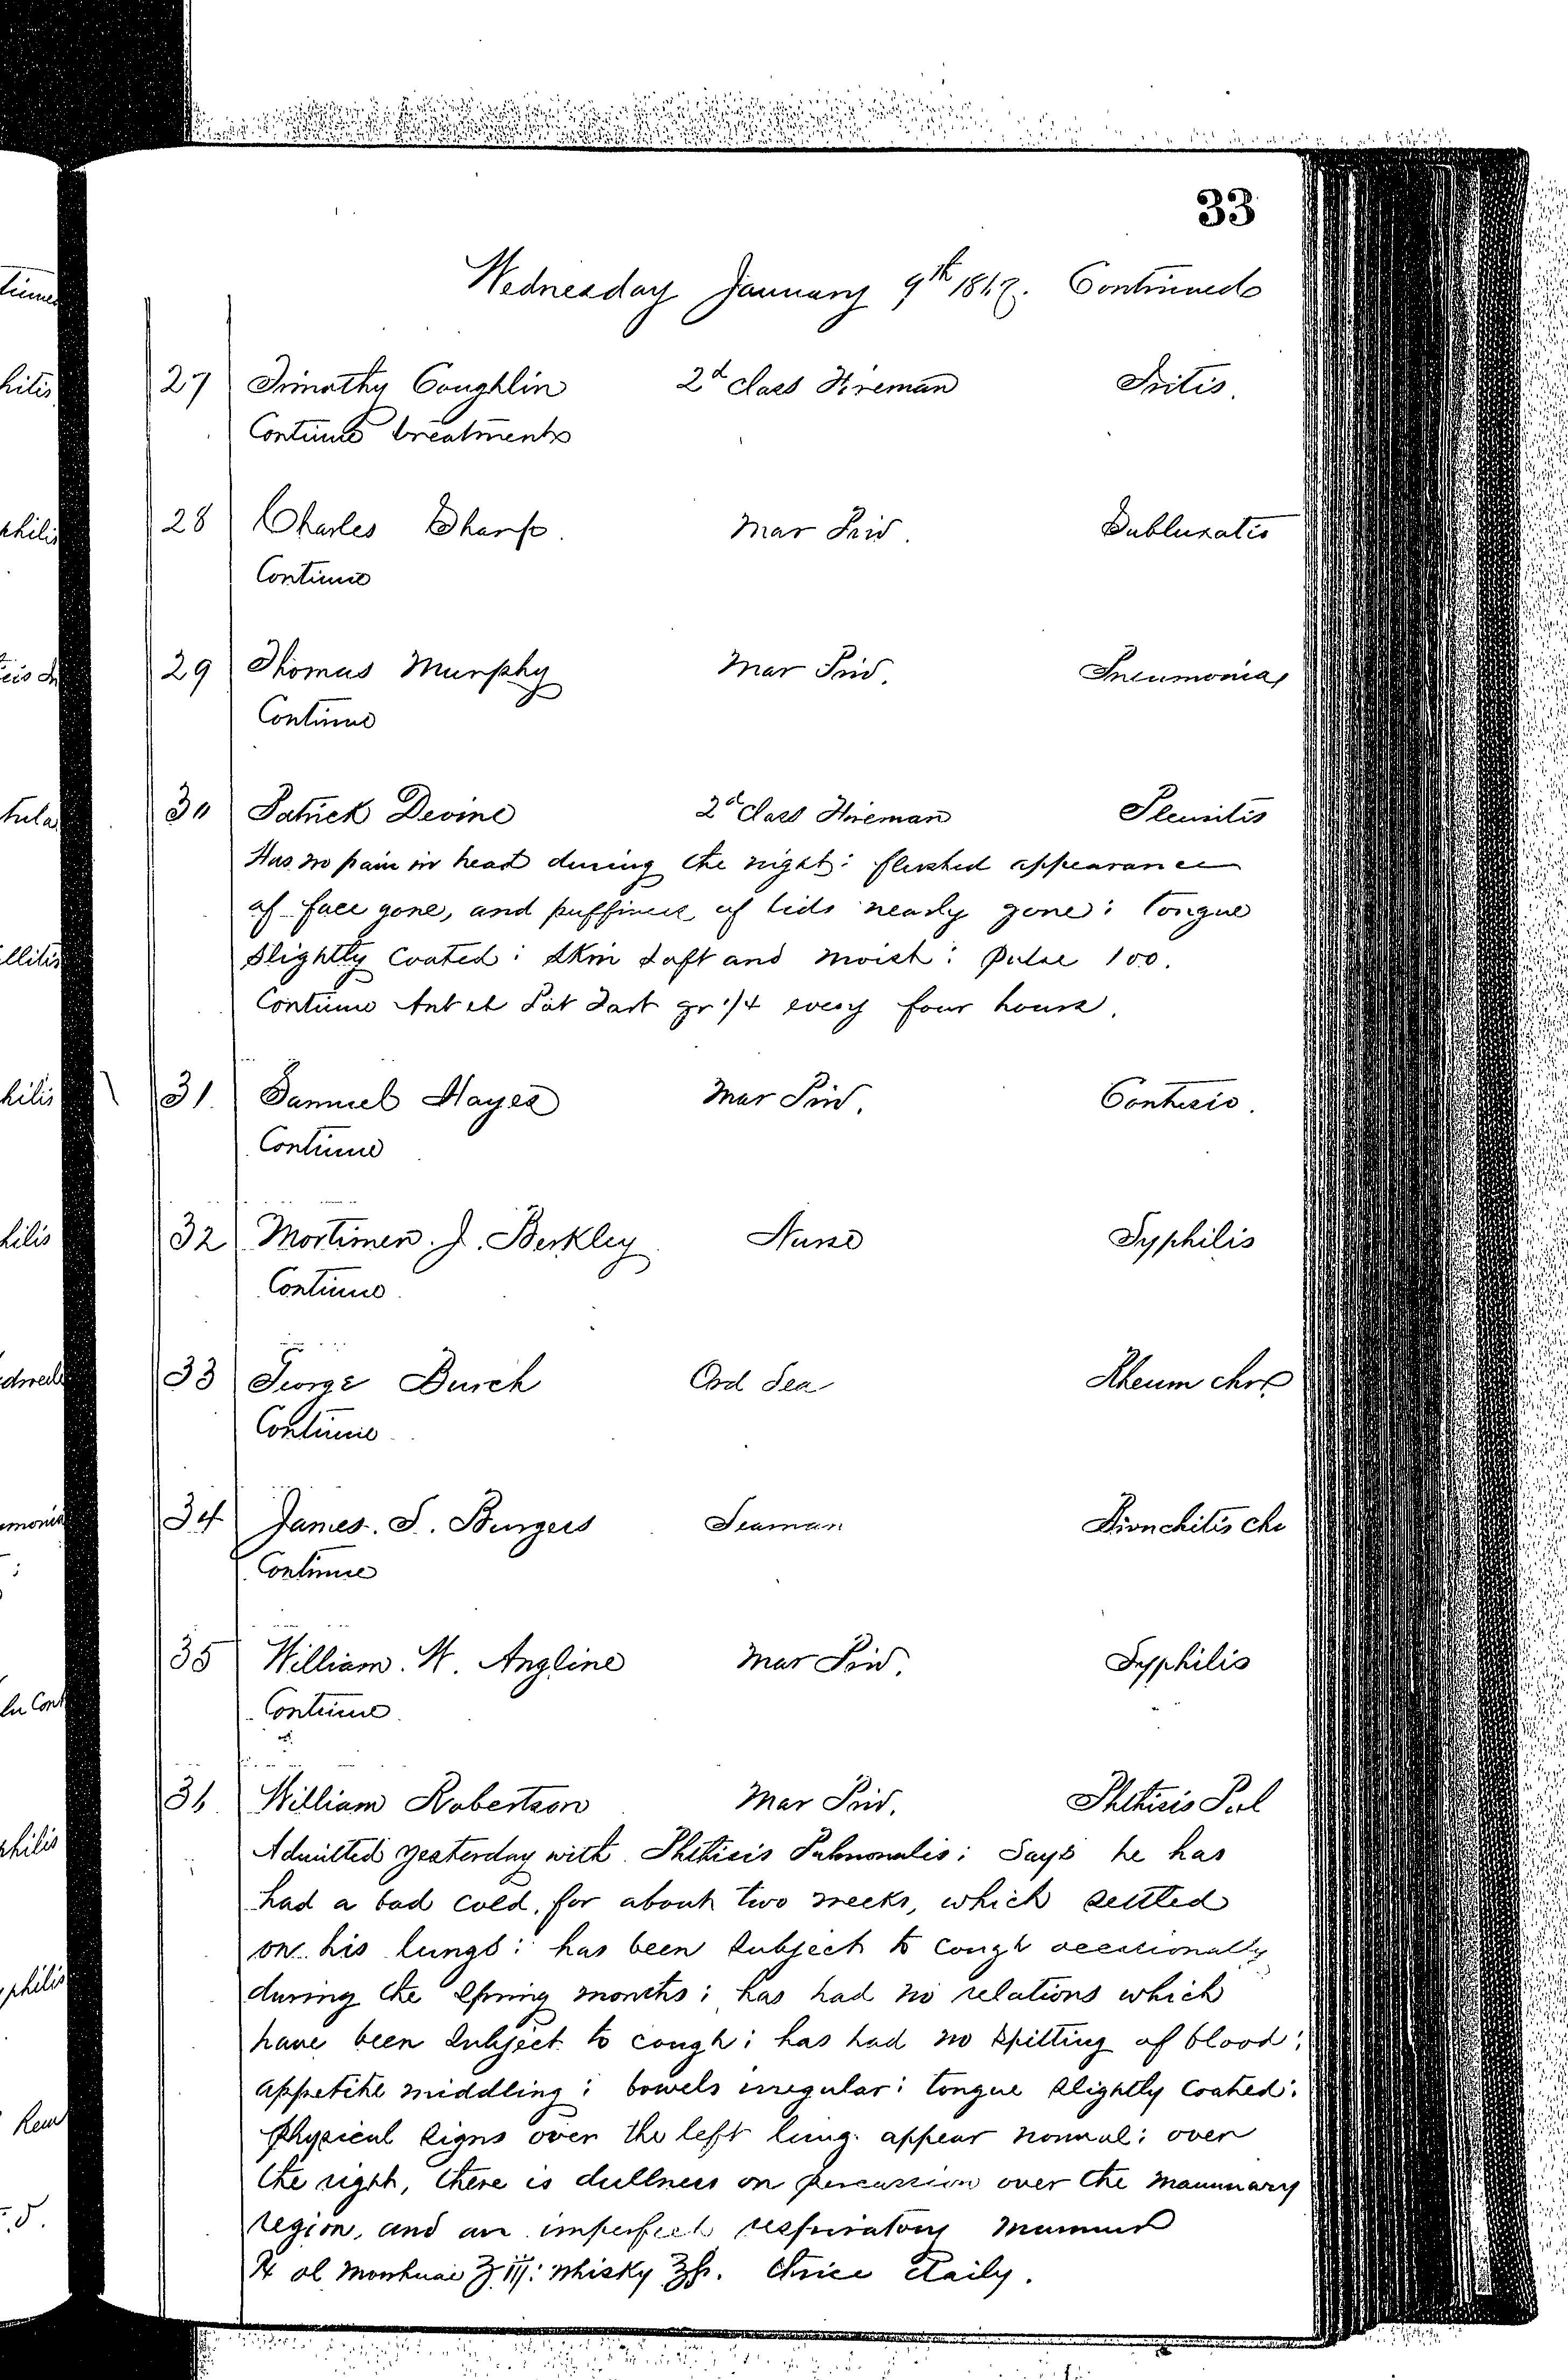 33
Wednesday January 9th 1867. Continued
27 Timothy Coughlin 2d Class Fireman Iritis.
Continue treatment
28 Charles Sharp. Mar Priv. Subluxatio
Continue
29 Thomas Murphy Mar Priv. Pneumonia,
Continue
30 Patrick Devine 2d Class Fireman Pleuritis
Has no pain in head during the night: flushed appearance
of face gone, and puffiness of lids nearly gone: tongue
slightly coated: skin soft and moist: pulse 100.
Continue Ant et Pot Tart gr 1/4 every four hours.
31. Samuel Hayes Mar Priv. Contusio.
Continue
32 Mortimer. J. Berkley. Nurse Syphilis
Continue.
33 George Burch Ord Sea Rheum chro
Continue
34 James. S. Burgess Seaman Bronchitis Chr
Continue
35 William. W. Angline Mar Priv. Syphilis
Continue.
36 William Robertson Mar Priv. Phthisis Pul
Admitted yesterday with Phthisis Pulmonalis: Says he has
had a bad cold, for about two weeks, which settled
on his lungs: has been subject to cough occasionally
during the Spring months: has had no relations which
have been subject to cough: has had no spitting of blood:
appetite middling: bowels irregular: tongue slightly coated:
physical signs over the left lung appear normal: over
the right, there is dullness on percussion over the mammary
region, and an imperfect respiratory murmur
℞ ol Morrhuae ʒiij: whisky ℥ß. thrice daily.